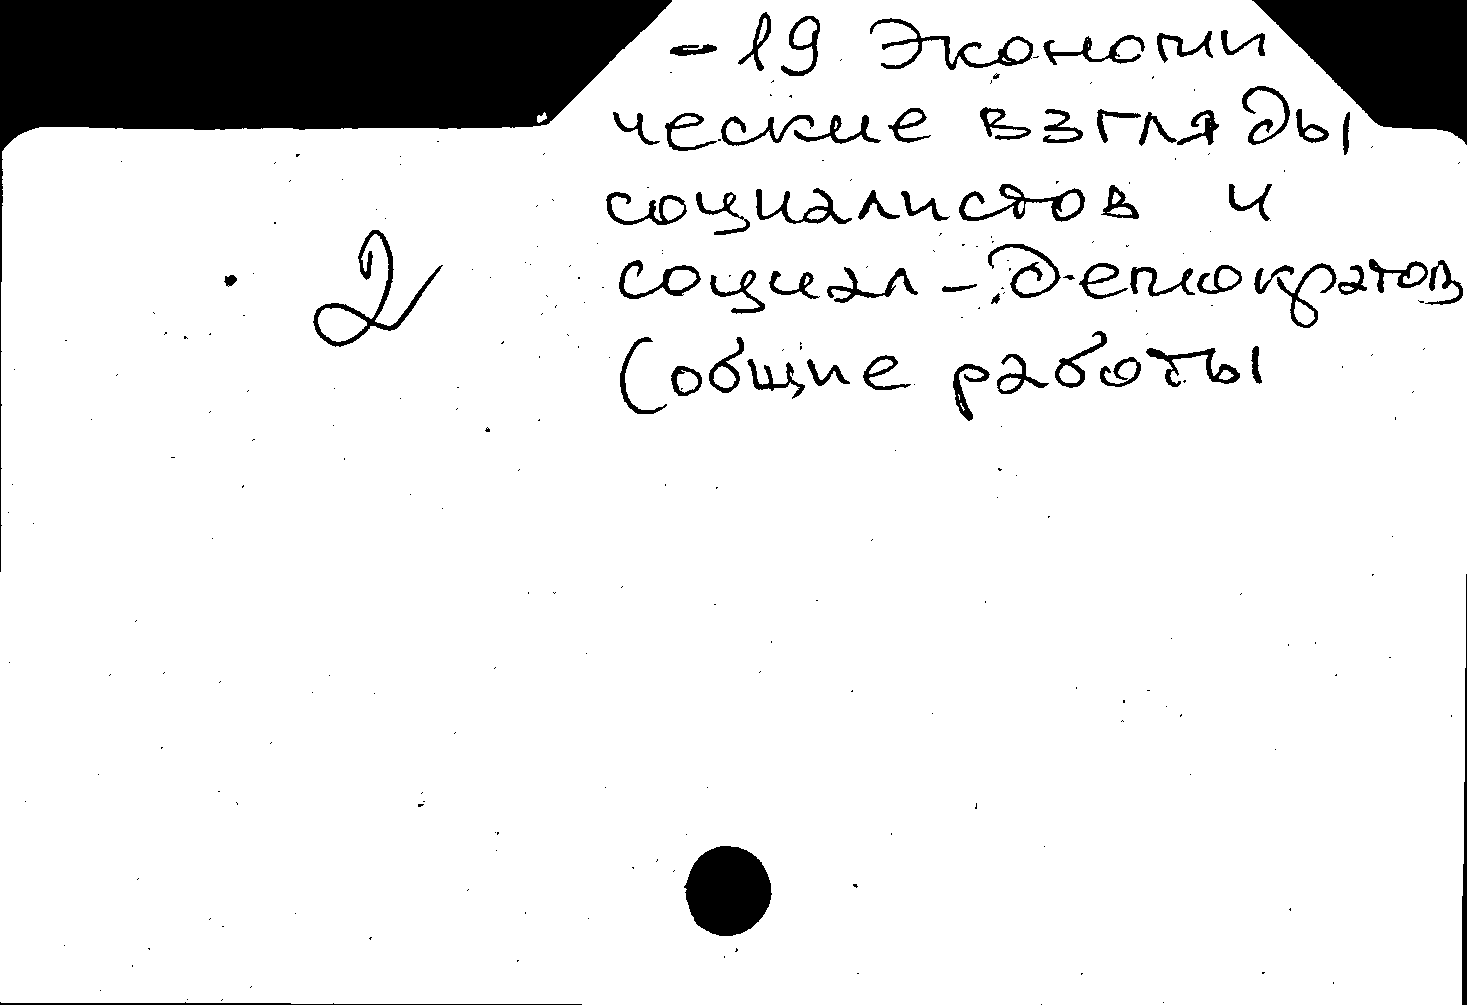 -19 Экономи
ческие взгляды
социалистов и
социал-демократов
(общие работы
2